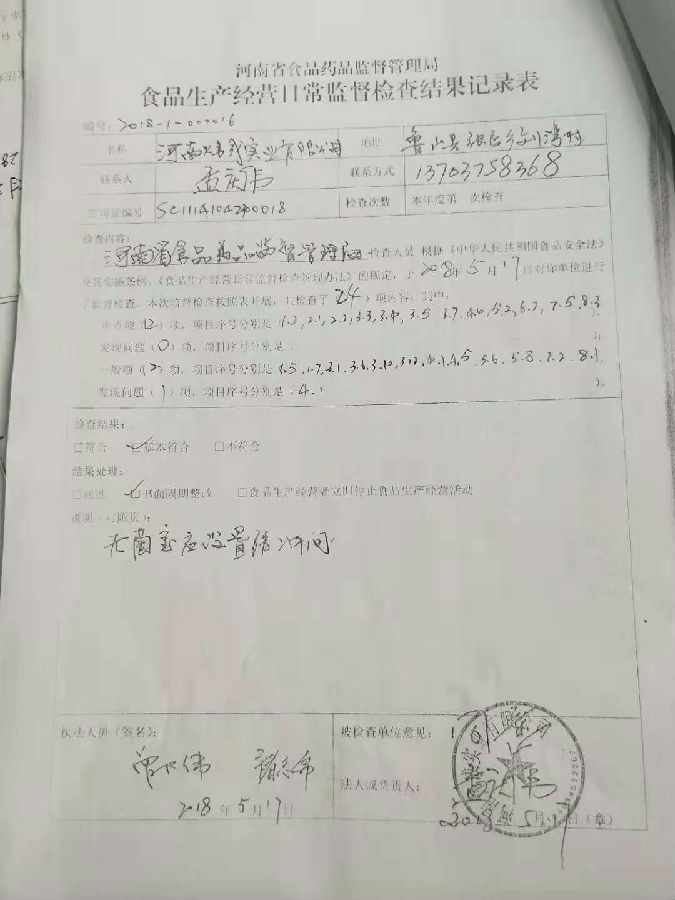 河南省食品药品监督管理局
食品生产经营日常监督检查结果记录表
编号：2018-1-000016
名称 河南 实业有限公司 地址 鲁山县张店乡刘湾村
联系人 孟 联系方式 13703758368
许可证编号 SC11141042300018 检查次数 本年度第 次检查
检查内容：
河南省食品药品监督管理局 检查人员 根据《中华人民共和国食品安全法》
及其实施条例、《食品生产经营日常监督检查管理办法》的规定，于2018年5月17日对你单位进行
了监督检查。本次监督检查按照表开展，共检查了（24）项内容；其中：
重点项（12）项，项目序号分别是（1.2, 2.1, 2.2, 3.3, 3.4, 3.5 3.7 4.0, 5.2, 6.2, 7.5, 8.3）；
发现问题（0）项，项目序号分别是（ ）；
一般项（12）项，项目序号分别是（1.5, 1.7, 2.1 3.6, 3.10, 3.12, 4.1, 4.5 5.5, 5.8, 7.2 8.1）；
发现问题（1）项，项目序号分别是（4.1）。
检查结果：
□符合 ☑基本符合 □不符合
结果处理：
□通过 ☑书面限期整改 □食品生产经营者立即停止食品生产经营活动
说明（可附页）：
无菌室应设置缓冲间
执法人员（签名）： 被检查单位意见：
法人或负责人：
2018年5月17日 2018年5月17日（章）